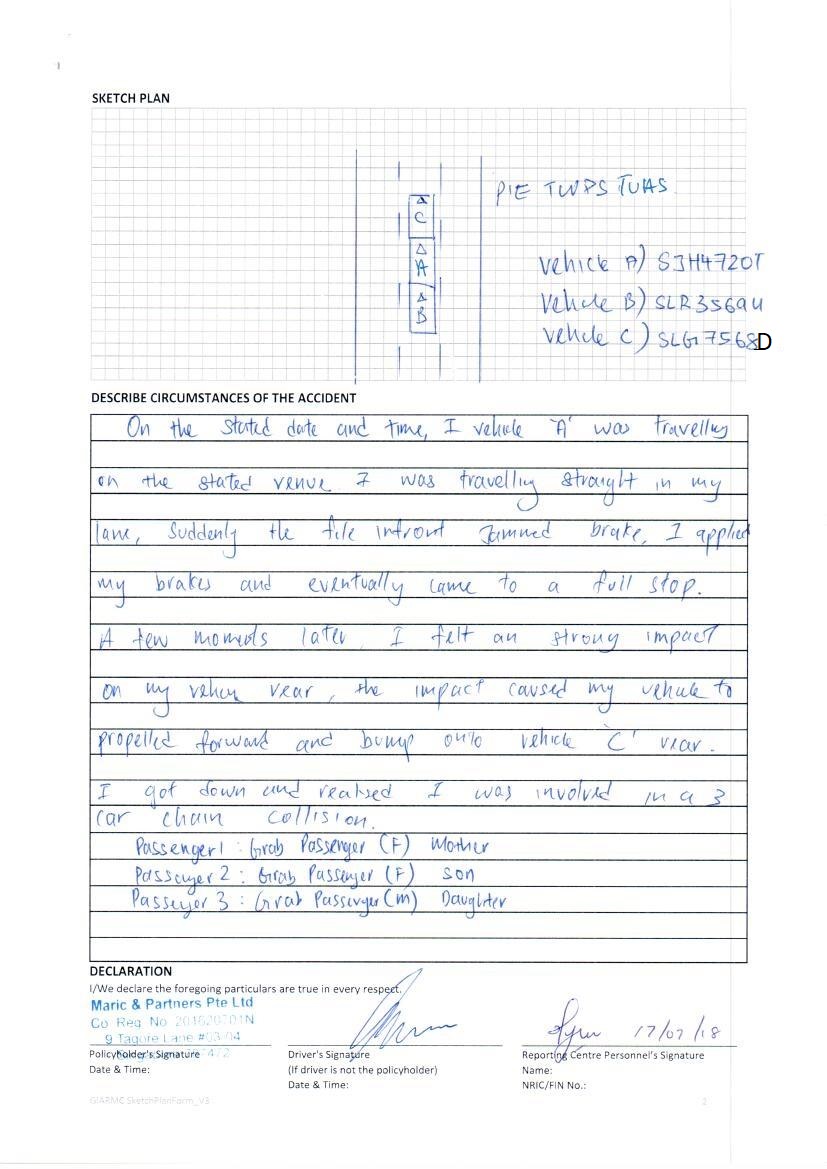 SKETCH PLAN
PIE TWDS TUAS
C
A
B
Vehicle A) SJH4720T
Vehicle B) SLR3569U
Vehicle C) SLG7568D
DESCRIBE CIRCUMSTANCES OF THE ACCIDENT
On the stated date and time, I vehicle 'A' was travelling
on the stated venue I was travelling straight in my
lane, suddenly the file infront jammed brake, I applied
my brakes and eventually came to a full stop.
A few moments later I felt an strong impact
on my vehicle rear, the impact caused my vehicle to
propelled forward and bump onto vehicle 'C' rear.
I got down and realised I was involved in a 3
car chain collision.
Passenger 1 : Grab Passenger (F) Mother
Passenger 2 : Grab Passenger (F) son
Passenger 3 : Grab Passenger (m) Daughter
DECLARATION
I/We declare the foregoing particulars are true in every respect.
Maric & Partners Pte Ltd
Co Reg No 201620701N
9 Tagore Lane #03-04
17/07/18
Policyholder's Signature
Driver's Signature
Reporting Centre Personnel's Signature
Date & Time:
(If driver is not the policyholder)
Name:
Date & Time:
NRIC/FIN No.:
GIARMC SketchPlanForm_V3
2